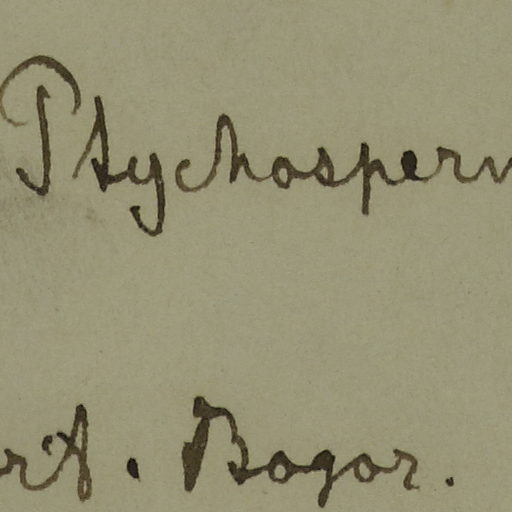 Ptychosperm
rt. Bogor.